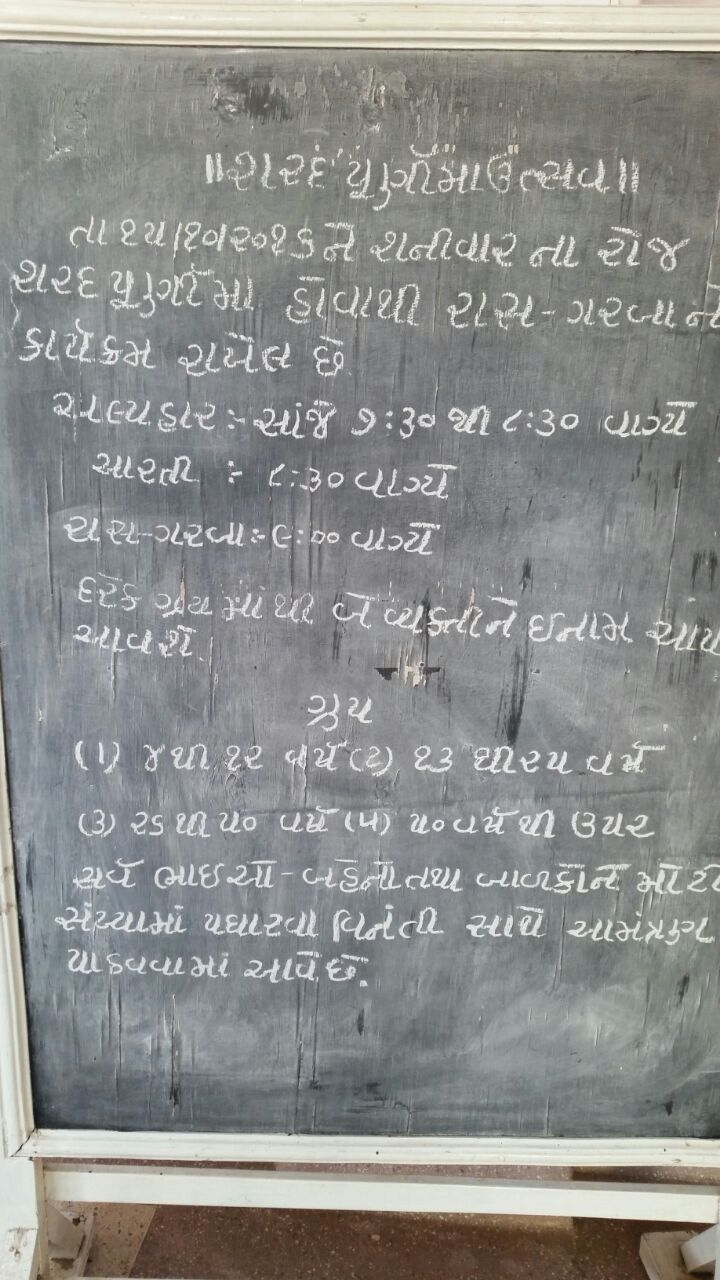 ॥શરદ પૂર્ણીમા ઉત્સવ॥
તા ૧૫/૧૦/૨૦૧૬ ને શનીવાર ના રોજ
શરદ પૂર્ણીમા હોવાથી રાસ-ગરબાનો
કાર્યક્રમ રાખેલ છે.
અલ્પાહાર:- સાંજે ૭:૩૦ થી ૮:૩૦ વાગ્યે
આરતી :- ૮:૩૦ વાગ્યે
રાસ-ગરબા:- ૯:૦૦ વાગ્યે
દરેક ગ્રુપ માં થી બે વ્યક્તીને ઈનામ આપ
આવશે.
ગ્રુપ
(1) ૪ થી ૧૨ વર્ષ (૨) ૧૩ થી ૨૫ વર્ષ
(૩) ૨૬ થી ૫૦ વર્ષ (૫) ૫૦ વર્ષ થી ઉપર
સર્વે ભાઇઓ-બહેનો તથા બાળકોને મોટી
સંખ્યામાં પધારવા વિનંતી સાથે આમંત્રણ
પાઠવવામાં આવે છે.